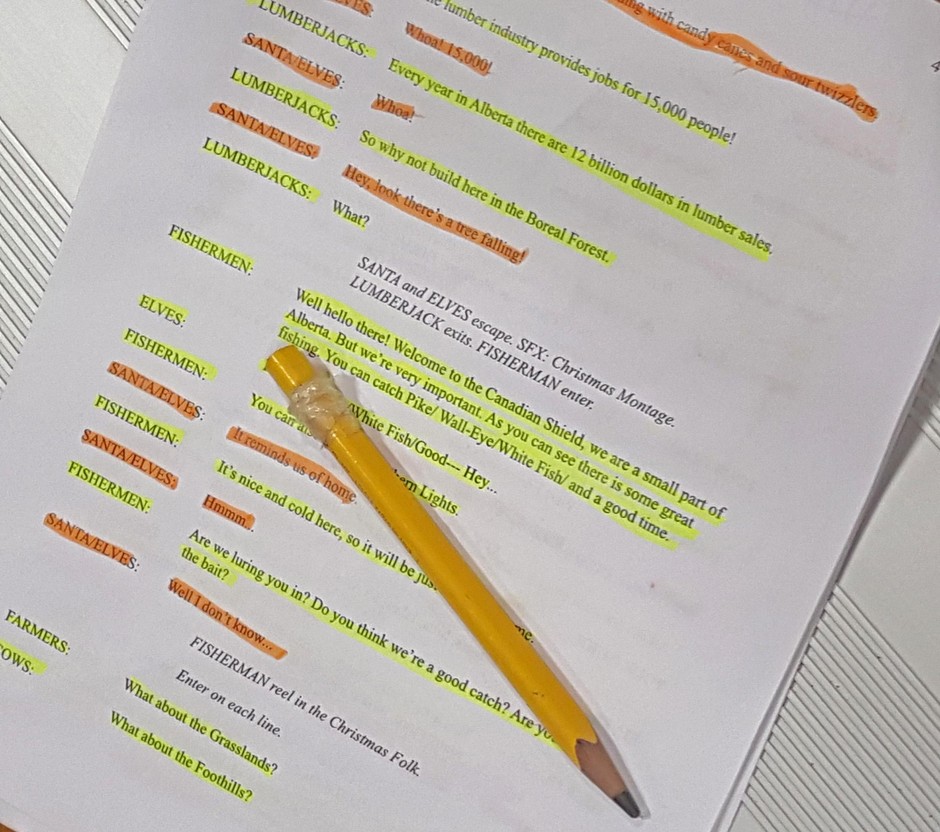 with candy canes and sour twizzlers.
lumber industry provides jobs for 15,000 people!
Whoa! 15,000!
LUMBERJACKS: Every year in Alberta there are 12 billion dollars in lumber sales.
SANTA/ELVES: Whoa!
LUMBERJACKS: So why not build here in the Boreal Forest.
SANTA/ELVES: Hey, look there's a tree falling!
LUMBERJACKS: What?
SANTA and ELVES escape. SFX: Christmas Montage.
LUMBERJACK exits. FISHERMAN enter.
FISHERMEN: Well hello there! Welcome to the Canadian Shield, we are a small part of
Alberta. But we're very important. As you can see there is some great
fishing. You can catch Pike/ Wall-Eye/White Fish/ and a good time.
ELVES: White Fish/Good--- Hey...
FISHERMEN: You can Lights.
SANTA/ELVES: It reminds us of home.
FISHERMEN: It's nice and cold here, so it will be
SANTA/ELVES: Hmmm.
FISHERMEN: Are we luring you in? Do you think we're a good catch? Are
the bait?
SANTA/ELVES: Well I don't know...
FISHERMAN reel in the Christmas Folk.
Enter on each line.
FARMERS: What about the Grasslands?
What about the Foothills?